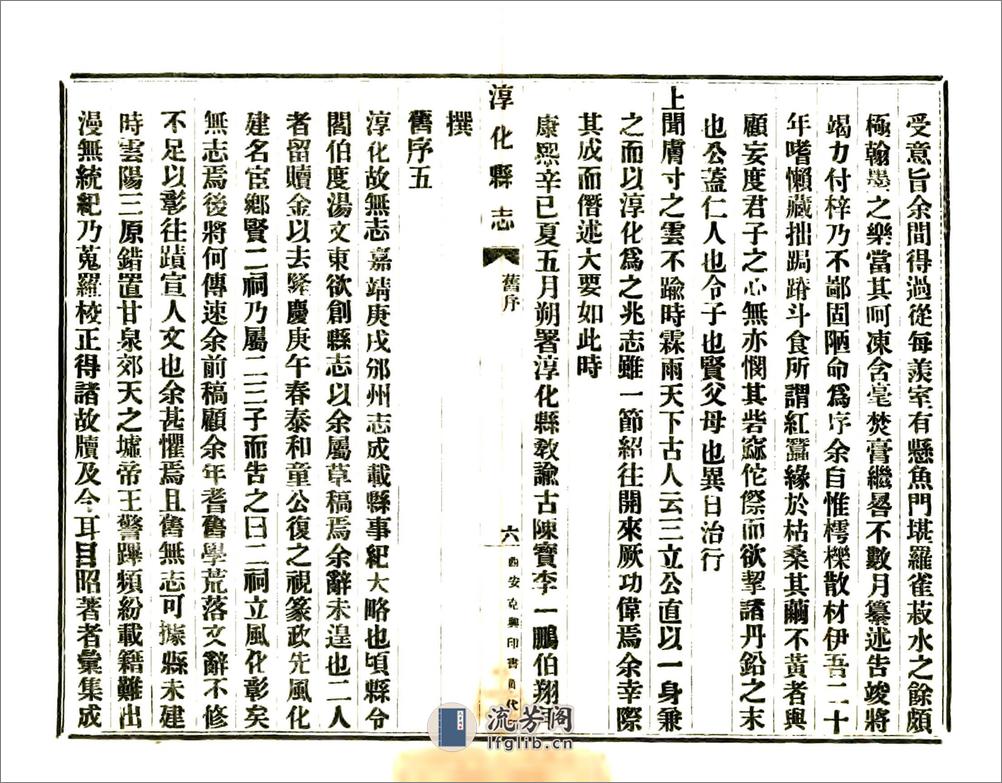 受意旨余間得過從每羨室有懸魚門堪羅雀菽水之餘頗
極翰墨之樂當其呵凍含毫焚膏繼晷不數月纂述告竣將
竭力付梓乃不鄙固陋命爲序余自惟樗櫟散材伊吾二十
年嗜懶藏拙跼蹐斗食所謂紅蠶緣於枯桑其繭不黃者與
顧妄度君子之心無亦憫其呰窳侘傺而欲挈諸丹鉛之末
也公蓋仁人也令子也賢父母也異日治行
上聞膚寸之雲不踰時霖雨天下古人云三立公直以一身兼
之而以淳化爲之兆志雖一節紹往開來厥功偉焉余幸際
其成而僭述大要如此時
康熙辛巳夏五月朔署淳化縣敎諭古陳寶李一鵬伯翔
撰
舊序五
淳化故無志嘉靖庚戌邠州志成載縣事紀大略也頃縣令
閻伯度湯文東欲創縣志以余屬草稿焉余辭未遑也二人
者留贖金以去隆慶庚午春泰和童公復之視篆政先風化
建名宦鄉賢二祠乃屬二三子而告之曰二祠立風化彰矣
無志焉後將何傳速余前稿顧余年耆舊學荒落文辭不修
不足以彰往蹟宣人文也余甚懼焉且舊無志可據縣未建
時雲陽三原錯置甘泉郊天之墟帝王警蹕頻紛載籍難出
漫無統紀乃蒐羅校正得諸故牘及今耳目昭著者彙集成
淳化縣志
舊序
六
西安克興印書館代
流芳閣
lfglib.cn